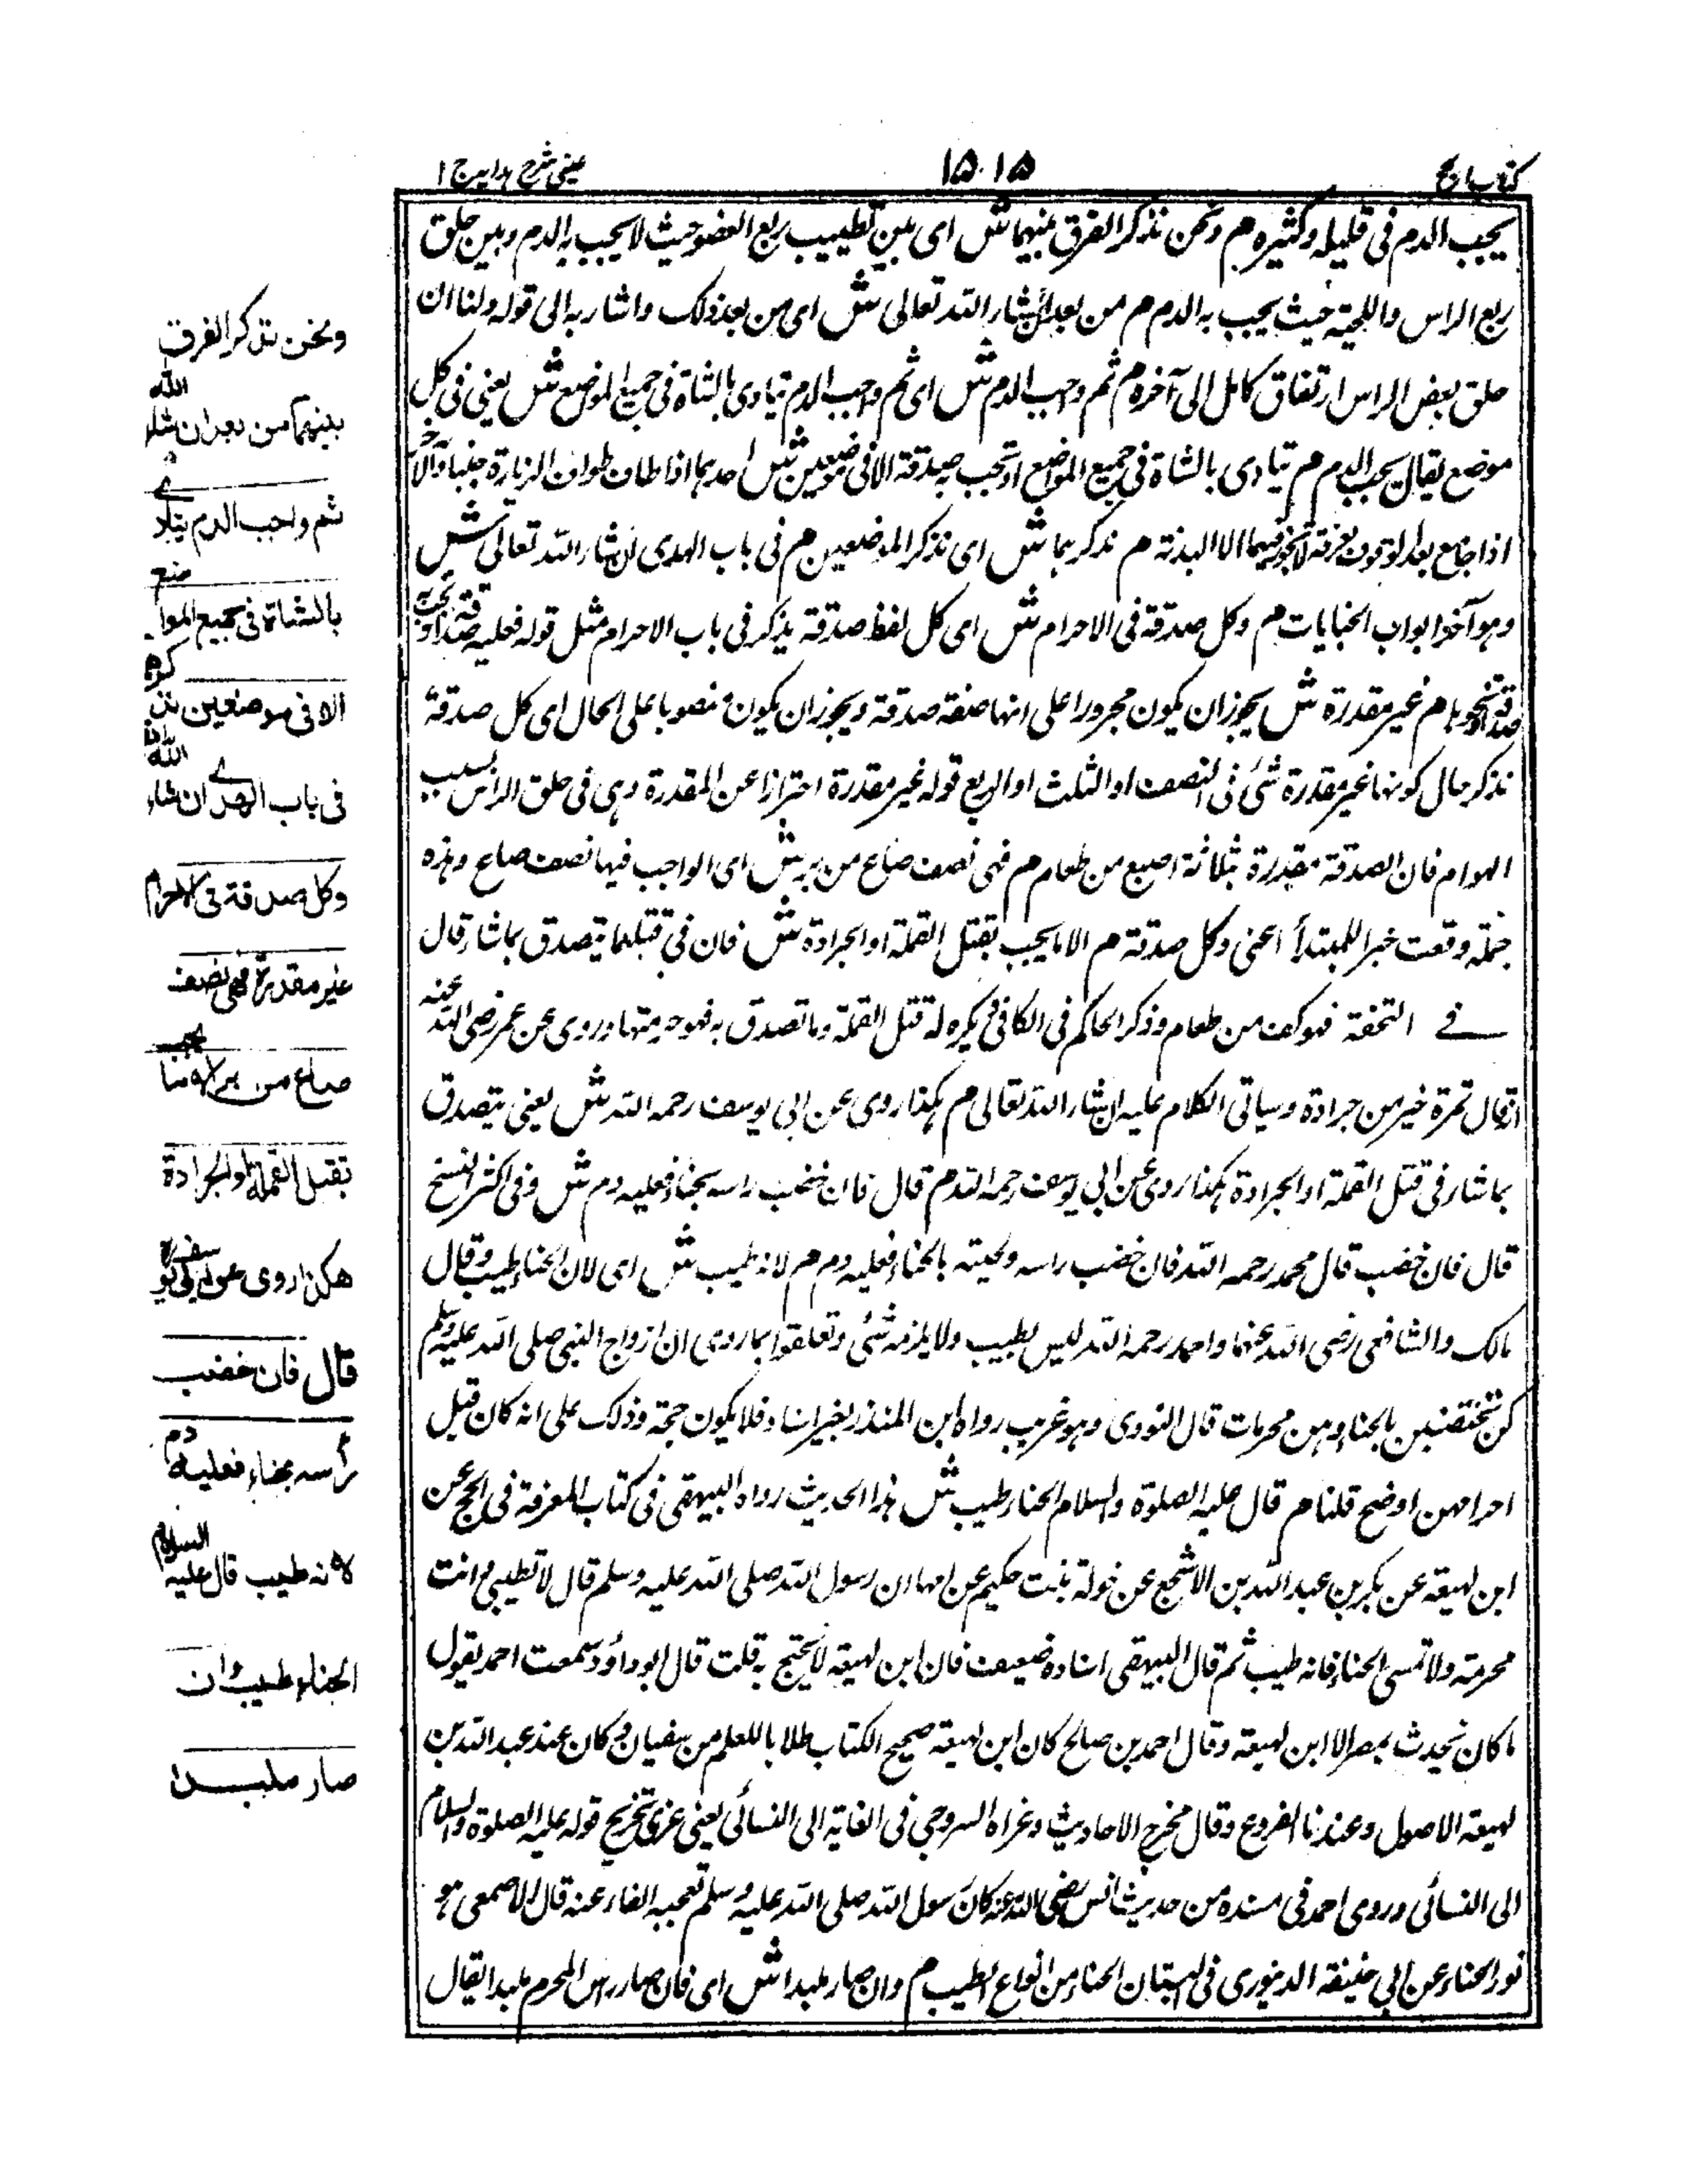 كتاب الحج
١٥٠١٥
عینی شرح ہدایہ ج ١
يجب الدم فى قليله وكثيره م ونحن نذكر الفرق بينهما ش اى بين تطييب ربع العضو حيث لا يجب به الدم وبين حلق
ربع الراس واللحية حيث يجب به الدم م من بعد ان شاء الله تعالى ش اى من بعد ذلك واشار به الى قوله ولنا ان
حلق بعض الراس ارتفاق كامل الى آخره م ثم واجب الدم ش اى ثم واجب الدم يتادى بالشاة فى جميع المواضع ش يعنى فى كل
موضع يقال يجب الدم م يتادى بالشاة فى جميع المواضع او تجب به صدقة الا فى موضعين ش احدهما اذا طاف طواف الزيارة جنبا والآخر
اذا جامع بعد الوقوف بعرفة لا يجوز فيهما الا البدنة م نذكرهما ش اى نذكر الموضعين م فى باب الهدى ان شاء الله تعالى ش
وهو آخر ابواب الجنايات م وكل صدقة فى الاحرام ش اى كل لفظ صدقة يذكر فى باب الاحرام مثل قوله فعليه صدقة او تجب به
صدقة او نحوها م غير مقدرة ش يجوز ان يكون مجرورا على انها صفة صدقة ويجوز ان يكون منصوبا على الحال اى كل صدقة
نذكر حال كونها غير مقدرة شئ فى النصف او الثلث او الربع قوله غير مقدرة احترازا عن المقدرة وهى فى حلق الراس بسبب
الهوام فان الصدقة مقدرة بثلاثة اصبع من طعام م فهى نصف صاع من بر ش اى الواجب فيها نصف صاع وهذه
جملة وقعت خبرا للمبتدأ اعنى وكل صدقة م الا ما يجب بقتل القملة او الجرادة ش فان فى قتلهما يتصدق بما شاء قال
فى التحفة فهو كف من طعام وذكر الحاكم فى الكافى يكره له قتل القملة وما تصدق به فهو خير منها وروى عن عمر رضى الله عنه
انه قال تمرة خير من جرادة وسياتى الكلام عليه ان شاء الله تعالى م هكذا روى عن ابى يوسف رحمه الله ش يعنى يتصدق
بما شاء فى قتل القملة او الجرادة هكذا روى عن ابى يوسف رحمه الله م قال فان خضب راسه بحناء فعليه دم ش وفى اكثر النسخ
قال فان خضب قال محمد رحمه الله فان خضب راسه ولحيته بالحناء فعليه دم م لانه طيب ش اى لان الحناء طيب وقال
مالك والشافعى رضى الله عنهما واحمد رحمه الله ليس بطيب ولا يلزمه شئ وتعلقوا بما روى ان ازواج النبى صلى الله عليه وسلم
كن تختضبن بالحناء وهن محرمات قال النووى وهو غريب رواه ابن المنذر بغير اسناد فلا يكون حجة وذلك على انه كان قبل
احرامهن اوضح قلنا م قال عليه الصلوة والسلام الحناء طيب ش هذا الحديث رواه البيهقى فى كتاب المعرفة فى الحج عن
ابن لهيعة عن بكر بن عبد الله بن الاشج عن خولة بنت حكيم عن امها ان رسول الله صلى الله عليه وسلم قال لا تطيبى وانت
محرمة ولا تمسى الحناء فانه طيب ثم قال البيهقى اسناده ضعيف فان ابن لهيعة لا يحتج به قلت قال ابو داؤد سمعت احمد يقول
ما كان يحدث بمصر الا ابن لهيعة وقال احمد بن صالح كان ابن لهيعة صحيح الكتاب طلابا للعلم من سفيان وكان عند عبد الله بن
لهيعة الاصول وعندنا الفروع وقال مخرج الاحاديث وعزاه السروجى فى الغاية الى النسائى يعنى عزى تخريج قوله عليه الصلوة والسلام
الى النسائى وروى احمد فى مسنده من حديث انس رضى الله عنه كان رسول الله صلى الله عليه وسلم تعجبه الفاغية قال الاصمعى هو
نور الحناء وعن ابى حنيفة الدينورى فى البستان الحناء من انواع الطيب م وان صار ملبدا ش اى فان صار راس المحرم ملبدا يقال
ونحن نذكر الفرق
بينهما من بعد ان شاء الله
ثم واجب الدم يتادى
بالشاة فى جميع المواضع
الا فى موضعين نذكرهما
فى باب الهدى ان شاء الله
وكل صدقة فى الاحرام
غير مقدرة فهى نصف
صاع من بر الا ما يجب
بقتل القملة او الجرادة
هكذا روى عن ابى يوسف
قال فان خضب
رأسه بحناء فعليه دم
لانه طيب قال عليه السلام
الحناء طيب وان
صار ملبدا